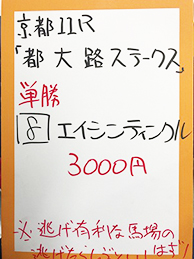 京都11R
「都大路ステークス」
単勝
8 エイシンティンクル
3000円
※逃げ有利な馬場の
逃げ
はず